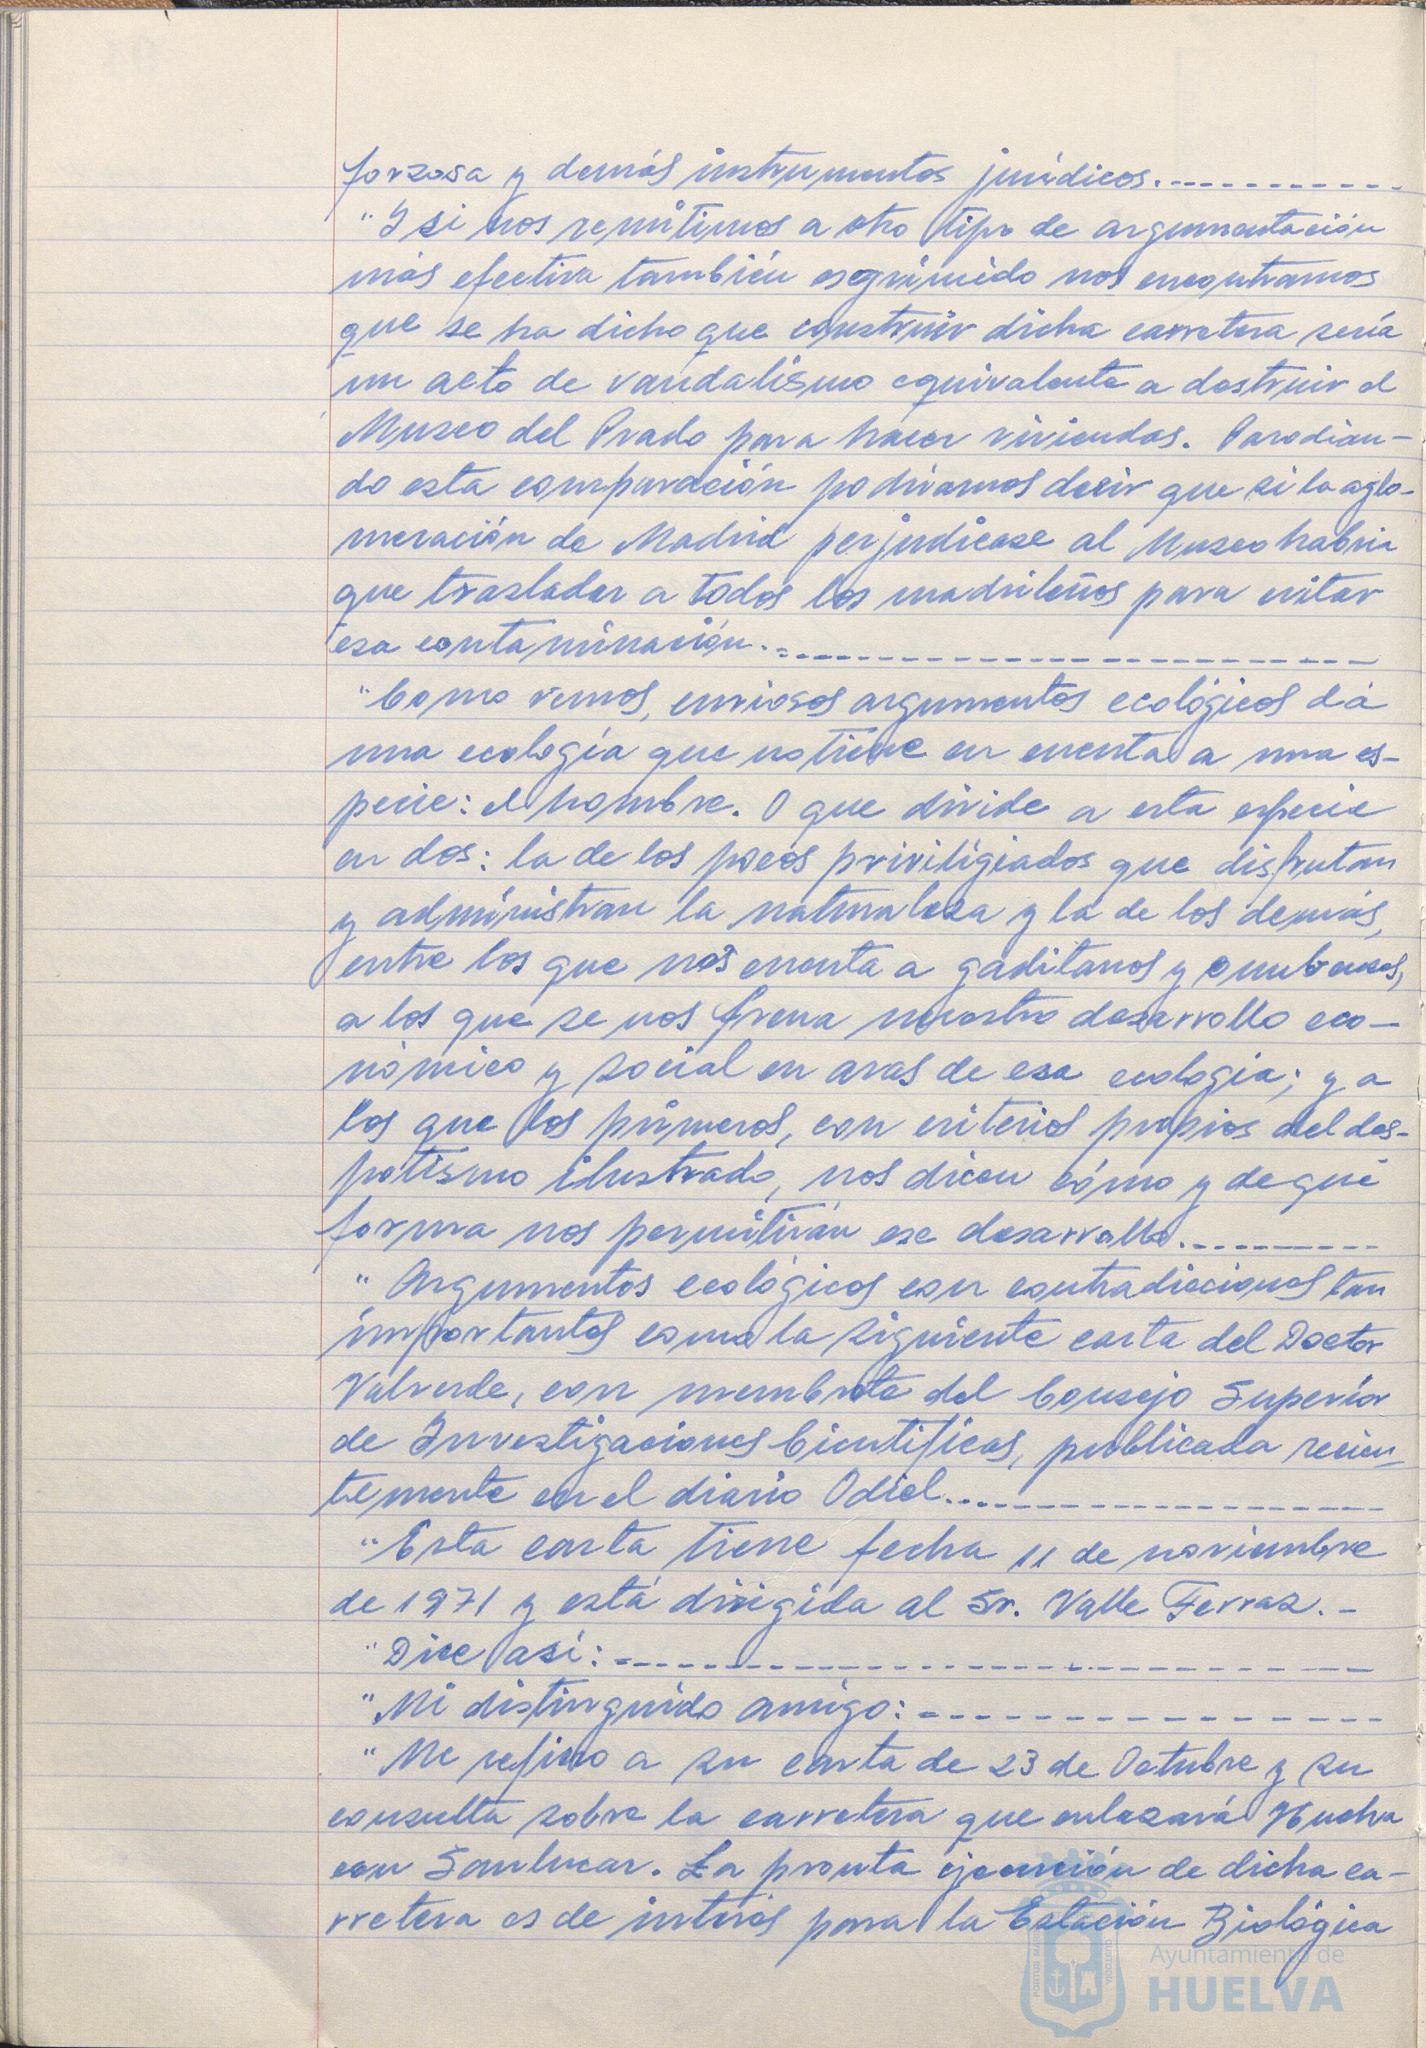 forzosa y demás instrumentos jurídicos.
"Y si nos remitimos a otro tipo de argumentación
más efectiva también esgrimido nos encontramos
que se ha dicho que construir dicha carretera sería
un acto de vandalismo equivalente a destruir el
Museo del Prado para hacer viviendas. Parodian-
do esta comparación podríamos decir que si la aglo-
meración de Madrid perjudicase al Museo habría
que trasladar a todos los madrileños para evitar
esa contaminación.
"Como vemos, curiosos argumentos ecológicos dá
una ecología que no tiene en cuenta a una es-
pecie: el hombre. O que divide a esta especie
en dos: la de los pocos priviligiados que disfrutan
y administran la naturaleza y la de los demás,
entre los que nos cuenta a gaditanos y onubenses,
a los que se nos frena nuestro desarrollo eco-
nómico y social en aras de esa ecología; y a
los que los primeros, con criterios propios del des-
potismo ilustrado, nos dicen cómo y de qué
forma nos permitirán ese desarrollo.
"Argumentos ecológicos con contradicciones tan
importantes como la siguiente carta del Doctor
Valverde, con membrete del Consejo Superior
de Investigaciones Científicas, publicada recien-
temente en el diario Odiel.
"Esta carta tiene fecha 11 de noviembre
de 1971 y está dirigida al Sr. Valle Ferraz.-
"Dice así:
"Mi distinguido amigo:
"Me refiero a su carta de 23 de Octubre y su
consulta sobre la carretera que enlazará Huelva
con Sanlucar. La pronta ejecución de dicha ca-
rretera es de interés para la Estación Biológica
Ayuntamiento de
HUELVA